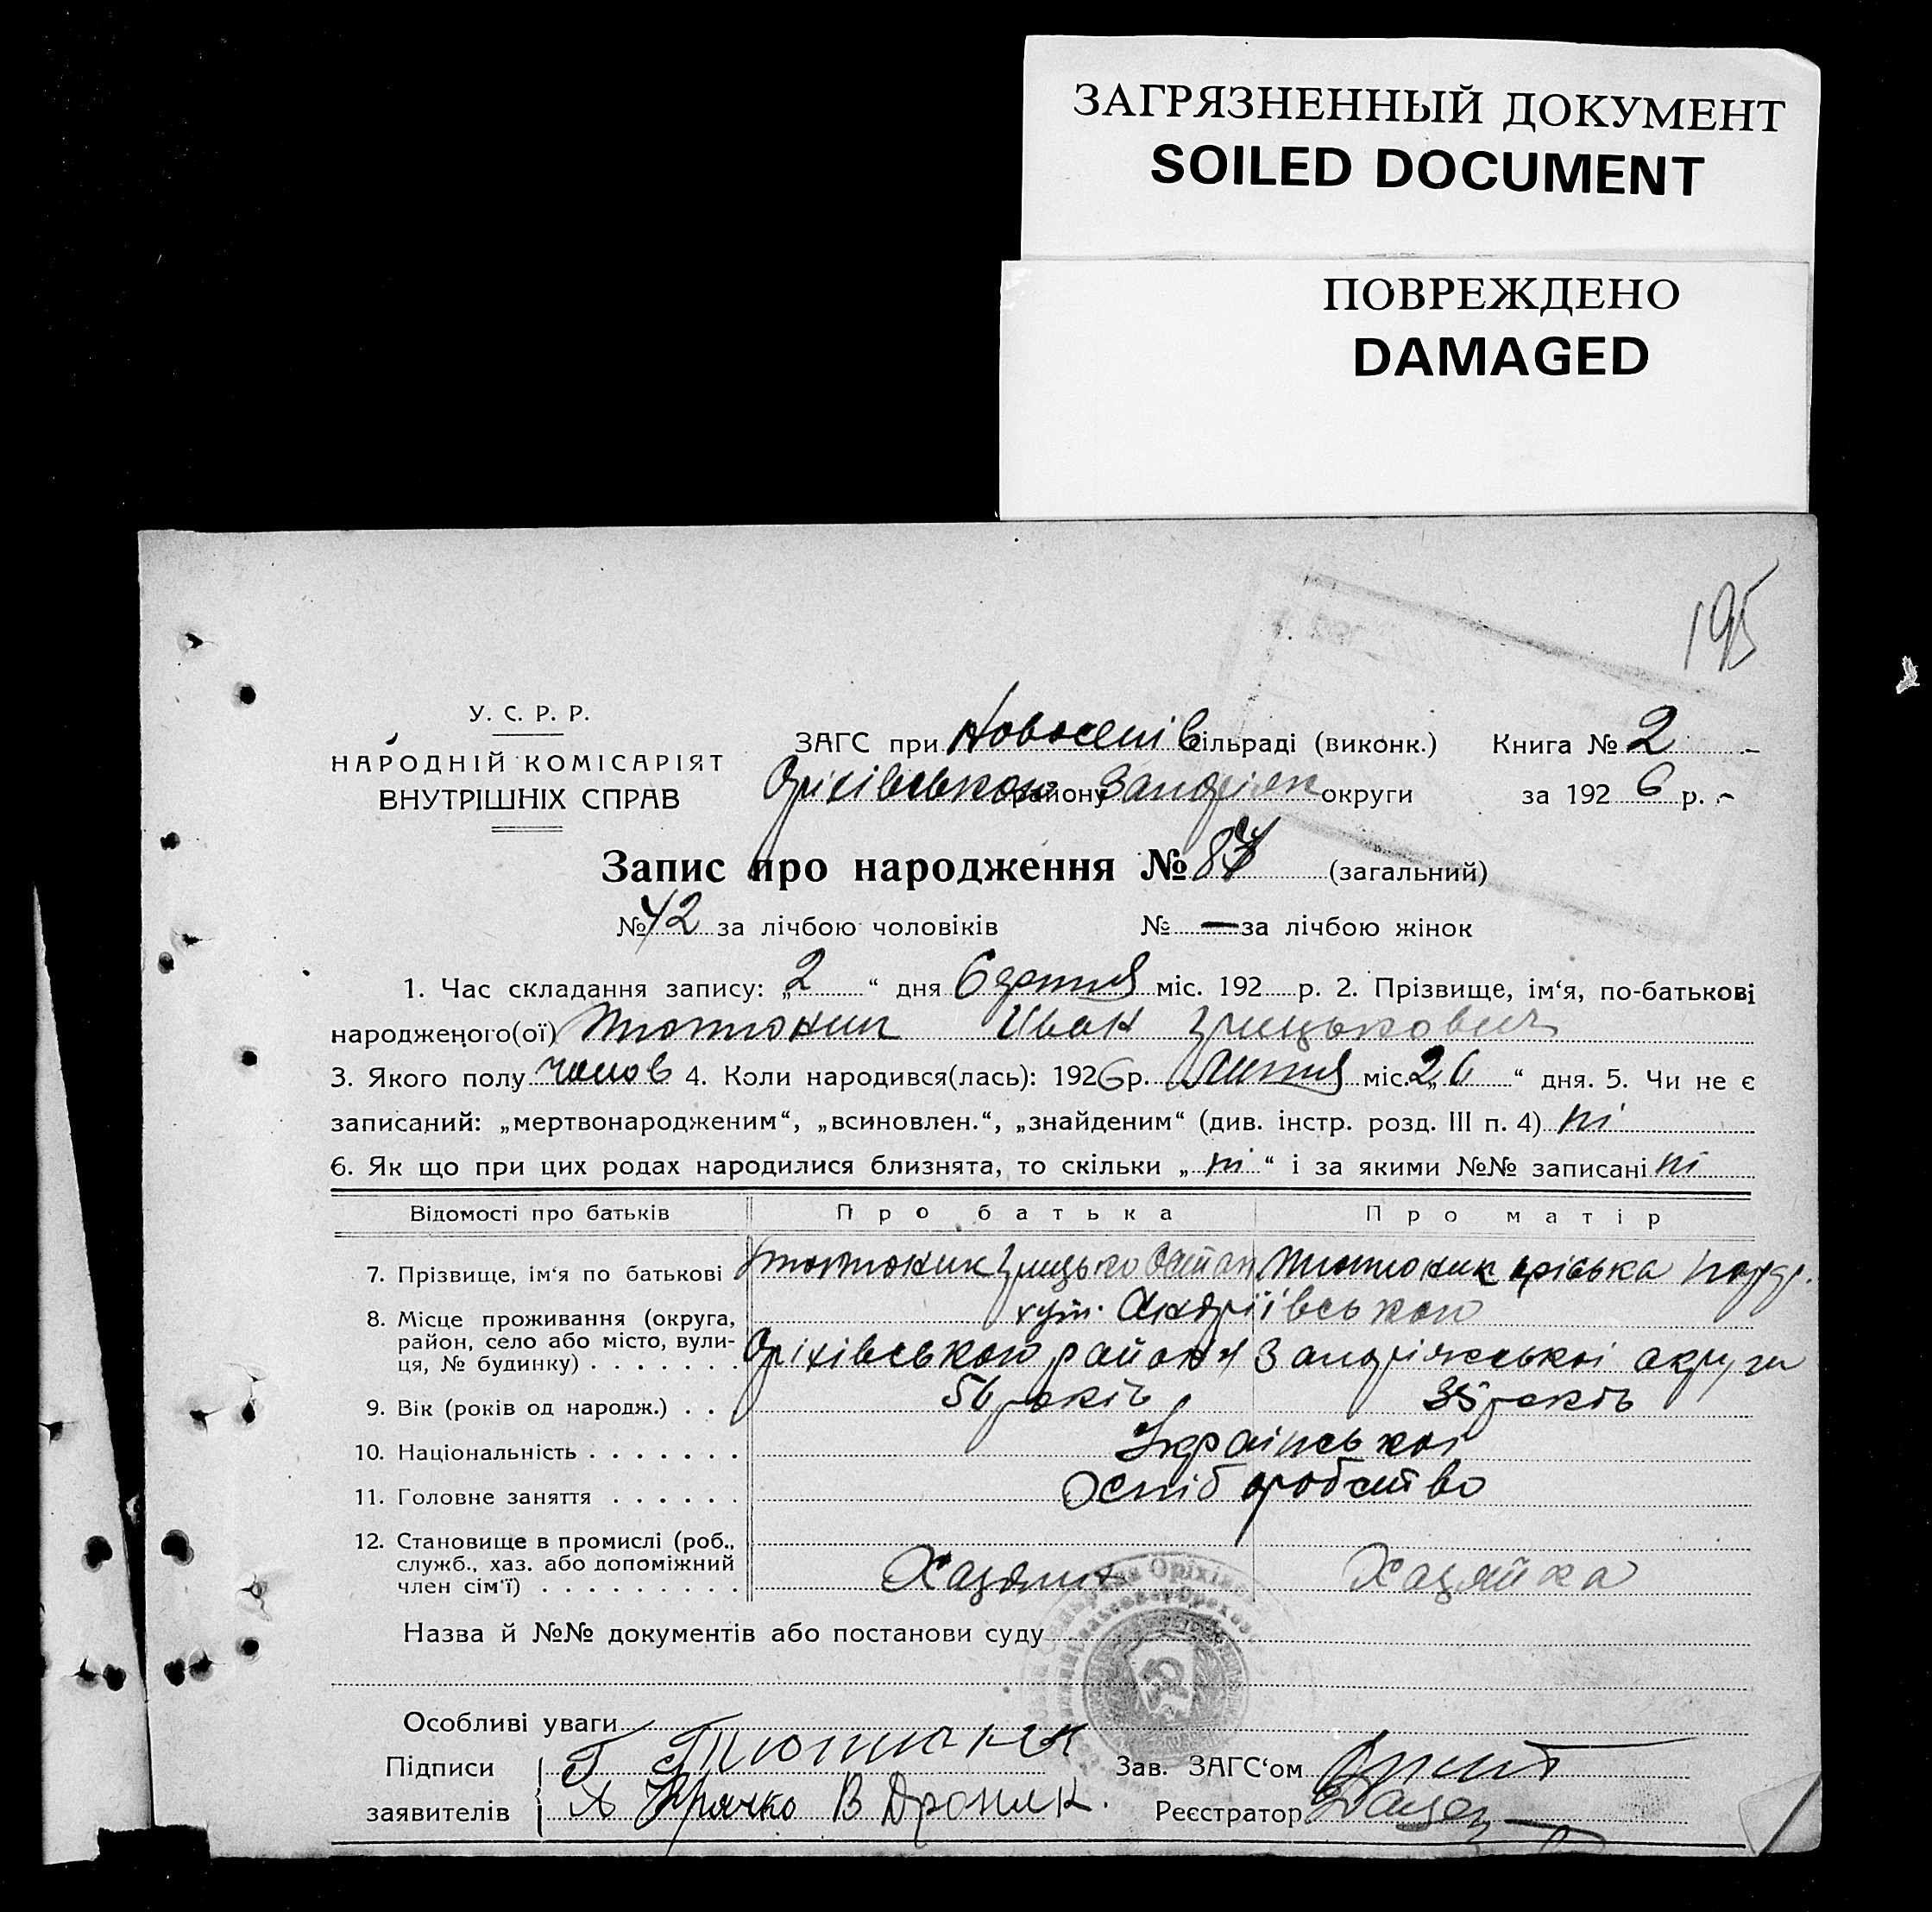 ЗАГРЯЗНЕННЫЙ ДОКУМЕНТ
SOILED DOCUMENT
ПОВРЕЖДЕНО
DAMAGED
195
У. С. Р. Р.
НАРОДНІЙ КОМІСАРІЯТ
ВНУТРІШНІХ СПРАВ
ЗАГС при Новоселів сільраді (виконк.) Книга № 2
Оріхівського району Запоріж округи за 1926 р.
Запис про народження № 87 (загальний)
№ 42 за лічбою чоловіків № — за лічбою жінок
1. Час складання запису: „2“ дня Серпня міс. 192 р. 2. Прізвище, ім‘я, по-батькові
народженого(ої) Тютюник Иван Грицькович
3. Якого полу чолов 4. Коли народився(лась): 1926 р. Липня міс. „26“ дня. 5. Чи не є
записаний: „мертвонародженим“, „всиновлен.“, „знайденим“ (див. інстр. розд. III п. 4) ні
6. Як що при цих родах народилися близнята, то скільки „ні“ і за якими №№ записані ні
Відомості про батьків Про батька Про матір
7. Прізвище, ім‘я по батькові Тютюник Грицько Остап Тютюник
8. Місце проживання (округа, район, село або місто, вулиця, № будинку) хут. Андріївського
Оріхівського району Запоріжської округи
9. Вік (років од народж.) 56 років 35 років
10. Національність Української
11. Головне заняття
12. Становище в промислі (роб., служб., хаз. або допоміжний член сім‘ї) Хазяин Хазяйка
Назва й №№ документів або постанови суду
Особливі уваги
Підписи заявителів Г Тютюник
Я Крячко В Дроник.
Зав. ЗАГС‘ом
Реєстратор